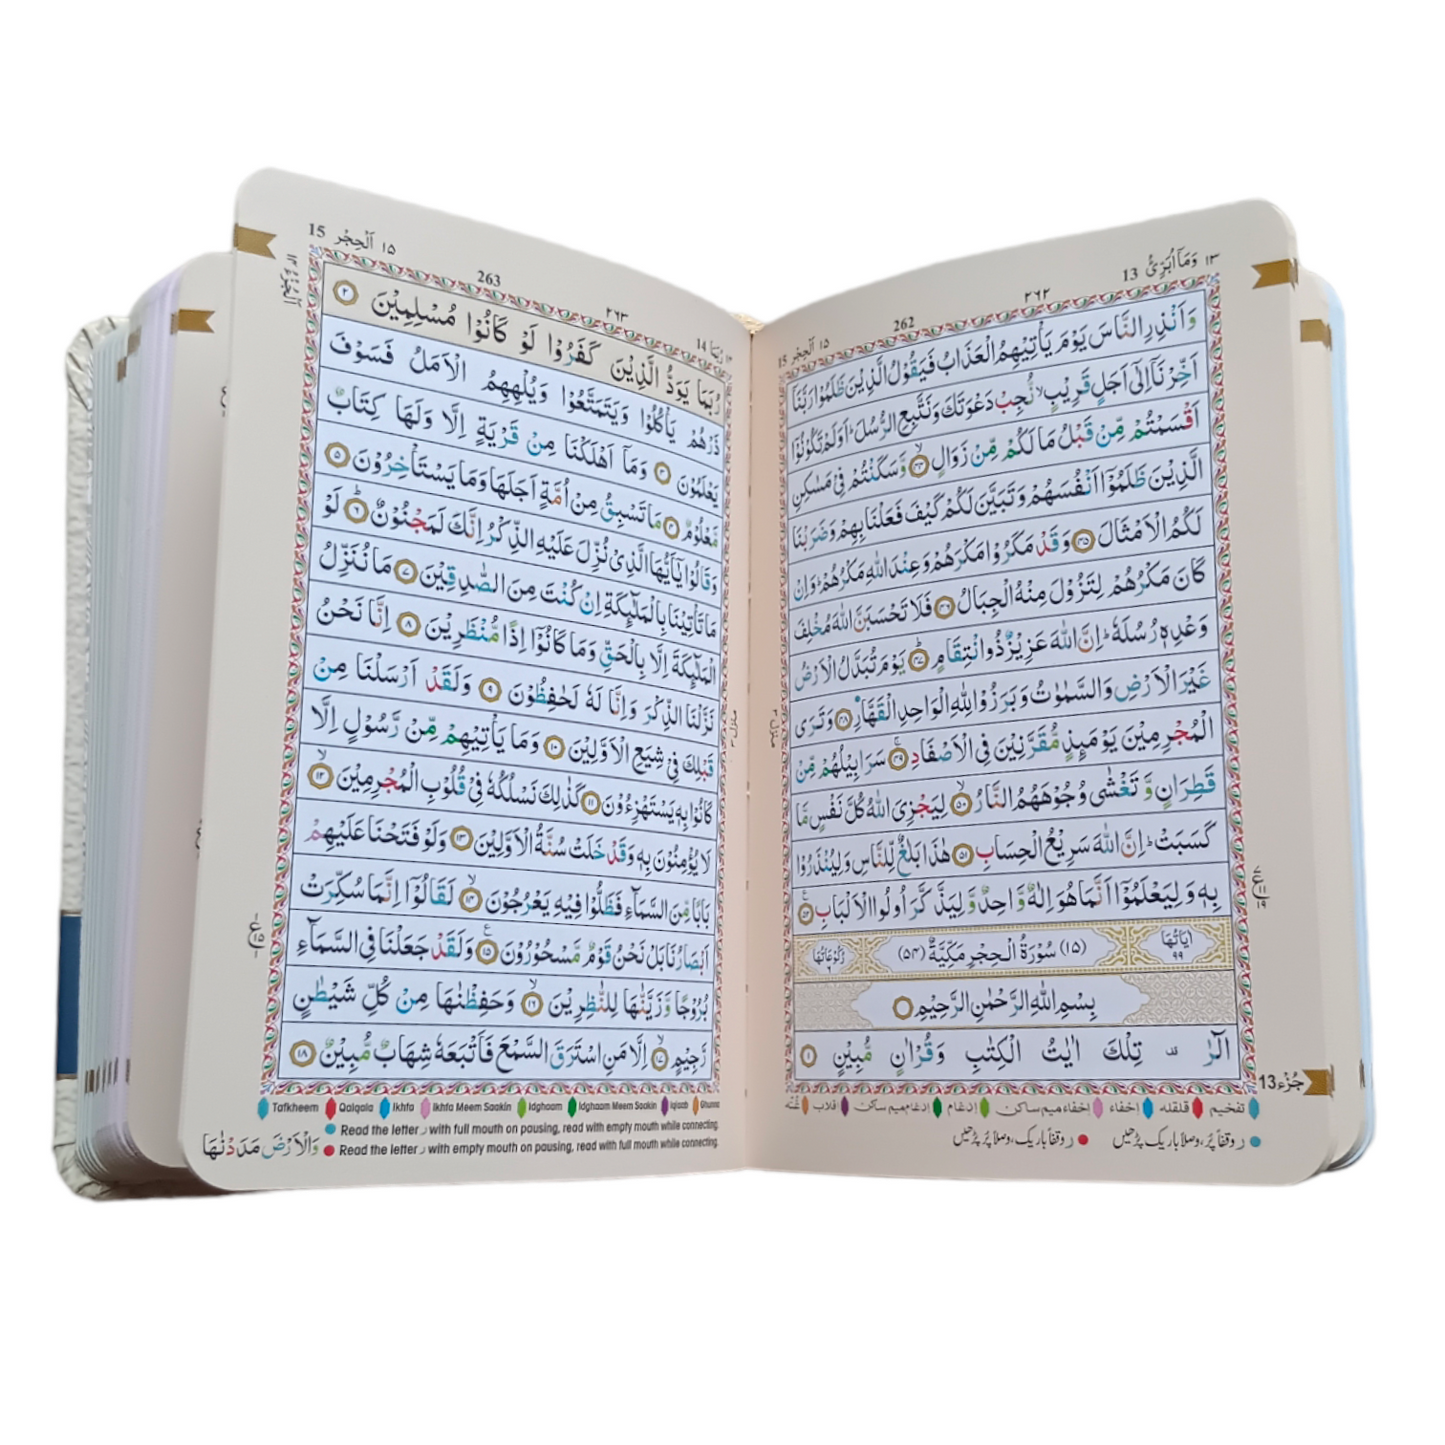 ۱۳ وَمَآ اُبَرِّئُ 13
۲۶۲
262
۱۵ اَلْحِجْر 15
وَاَنْذِرِ النَّاسَ يَوْمَ يَاْتِيْهِمُ الْعَذَابُ فَيَقُوْلُ الَّذِيْنَ ظَلَمُوْا رَبَّنَا
اَخِّرْنَآ اِلٰٓى اَجَلٍ قَرِيْبٍ ۙ نُّجِبْ دَعْوَتَكَ وَنَتَّبِعِ الرُّسُلَ ؕ اَوَلَمْ تَكُوْنُوْٓا
اَقْسَمْتُمْ مِّنْ قَبْلُ مَا لَكُمْ مِّنْ زَوَالٍ ۙ ۴۴ وَّسَكَنْتُمْ فِيْ مَسٰكِنِ
الَّذِيْنَ ظَلَمُوْٓا اَنْفُسَهُمْ وَتَبَيَّنَ لَكُمْ كَيْفَ فَعَلْنَا بِهِمْ وَضَرَبْنَا
لَكُمُ الْاَمْثَالَ ۴۵ وَقَدْ مَكَرُوْا مَكْرَهُمْ وَعِنْدَ اللّٰهِ مَكْرُهُمْ ؕ وَاِنْ
كَانَ مَكْرُهُمْ لِتَزُوْلَ مِنْهُ الْجِبَالُ ۴۶ فَلَا تَحْسَبَنَّ اللّٰهَ مُخْلِفَ
وَعْدِهٖ رُسُلَهٗ ؕ اِنَّ اللّٰهَ عَزِيْزٌ ذُو انْتِقَامٍ ۴۷ يَوْمَ تُبَدَّلُ الْاَرْضُ
غَيْرَ الْاَرْضِ وَالسَّمٰوٰتُ وَبَرَزُوْا لِلّٰهِ الْوَاحِدِ الْقَهَّارِ ۴۸ وَتَرَى
الْمُجْرِمِيْنَ يَوْمَئِذٍ مُّقَرَّنِيْنَ فِي الْاَصْفَادِ ۴۹ سَرَابِيْلُهُمْ مِّنْ
قَطِرَانٍ وَّ تَغْشٰى وُجُوْهَهُمُ النَّارُ ۙ ۵۰ لِيَجْزِيَ اللّٰهُ كُلَّ نَفْسٍ مَّا
كَسَبَتْ ؕ اِنَّ اللّٰهَ سَرِيْعُ الْحِسَابِ ۵۱ هٰذَا بَلٰغٌ لِّلنَّاسِ وَلِيُنْذَرُوْا
بِهٖ وَلِيَعْلَمُوْٓا اَنَّمَا هُوَ اِلٰهٌ وَّاحِدٌ وَّلِيَذَّكَّرَ اُولُوا الْاَلْبَابِ ۵۲
اٰيَاتُهَا ۹۹ (۱۵) سُوْرَةُ الْحِجْرِ مَكِّيَّةٌ (۵۴) رُكُوْعَاتُهَا ۶
بِسْمِ اللّٰهِ الرَّحْمٰنِ الرَّحِيْمِ
الٓرٰ ۫ تِلْكَ اٰيٰتُ الْكِتٰبِ وَقُرْاٰنٍ مُّبِيْنٍ ۱
جُزْء 13
تفخیم قلقله اخفاء اخفاء میم ساکن ادغام ادغام میم ساکن قلاب غنّه
ر وقفاً پُر، وصلاً باریک پڑھیں ر وقفاً باریک، وصلاً پُر پڑھیں
۱۴ رُبَمَا 14
۲۶۳
263
۱۵ اَلْحِجْر 15
اَلْجُزْءُ ۱۴
رُبَمَا يَوَدُّ الَّذِيْنَ كَفَرُوْا لَوْ كَانُوْا مُسْلِمِيْنَ ۲
ذَرْهُمْ يَاْكُلُوْا وَيَتَمَتَّعُوْا وَيُلْهِهِمُ الْاَمَلُ فَسَوْفَ
يَعْلَمُوْنَ ۳ وَمَآ اَهْلَكْنَا مِنْ قَرْيَةٍ اِلَّا وَلَهَا كِتَابٌ
مَّعْلُوْمٌ ۴ مَا تَسْبِقُ مِنْ اُمَّةٍ اَجَلَهَا وَمَا يَسْتَاْخِرُوْنَ ۵
وَقَالُوْا يٰٓاَيُّهَا الَّذِيْ نُزِّلَ عَلَيْهِ الذِّكْرُ اِنَّكَ لَمَجْنُوْنٌ ۶ لَوْ
مَا تَاْتِيْنَا بِالْمَلٰٓئِكَةِ اِنْ كُنْتَ مِنَ الصّٰدِقِيْنَ ۷ مَا نُنَزِّلُ
الْمَلٰٓئِكَةَ اِلَّا بِالْحَقِّ وَمَا كَانُوْٓا اِذًا مُّنْظَرِيْنَ ۸ اِنَّا نَحْنُ
نَزَّلْنَا الذِّكْرَ وَاِنَّا لَهٗ لَحٰفِظُوْنَ ۹ وَلَقَدْ اَرْسَلْنَا مِنْ
قَبْلِكَ فِيْ شِيَعِ الْاَوَّلِيْنَ ۱۰ وَمَا يَاْتِيْهِمْ مِّنْ رَّسُوْلٍ اِلَّا
كَانُوْا بِهٖ يَسْتَهْزِءُوْنَ ۱۱ كَذٰلِكَ نَسْلُكُهٗ فِيْ قُلُوْبِ الْمُجْرِمِيْنَ ۙ ۱۲
لَا يُؤْمِنُوْنَ بِهٖ وَقَدْ خَلَتْ سُنَّةُ الْاَوَّلِيْنَ ۱۳ وَلَوْ فَتَحْنَا عَلَيْهِمْ
بَابًا مِّنَ السَّمَآءِ فَظَلُّوْا فِيْهِ يَعْرُجُوْنَ ۙ ۱۴ لَقَالُوْٓا اِنَّمَا سُكِّرَتْ
اَبْصَارُنَا بَلْ نَحْنُ قَوْمٌ مَّسْحُوْرُوْنَ ۱۵ وَلَقَدْ جَعَلْنَا فِي السَّمَآءِ
بُرُوْجًا وَّزَيَّنّٰهَا لِلنّٰظِرِيْنَ ۙ ۱۶ وَحَفِظْنٰهَا مِنْ كُلِّ شَيْطٰنٍ
رَّجِيْمٍ ۙ ۱۷ اِلَّا مَنِ اسْتَرَقَ السَّمْعَ فَاَتْبَعَهٗ شِهَابٌ مُّبِيْنٌ ۱۸
Tafkheem Qalqala Ikhfa Ikhfa Meem Saakin Idghaam Idghaam Meem Saakin Iqlaab Ghunna
Read the letter ر with full mouth on pausing, read with empty mouth while connecting.
Read the letter ر with empty mouth on pausing, read with full mouth while connecting.
وَالْاَرْضَ مَدَدْنٰهَا